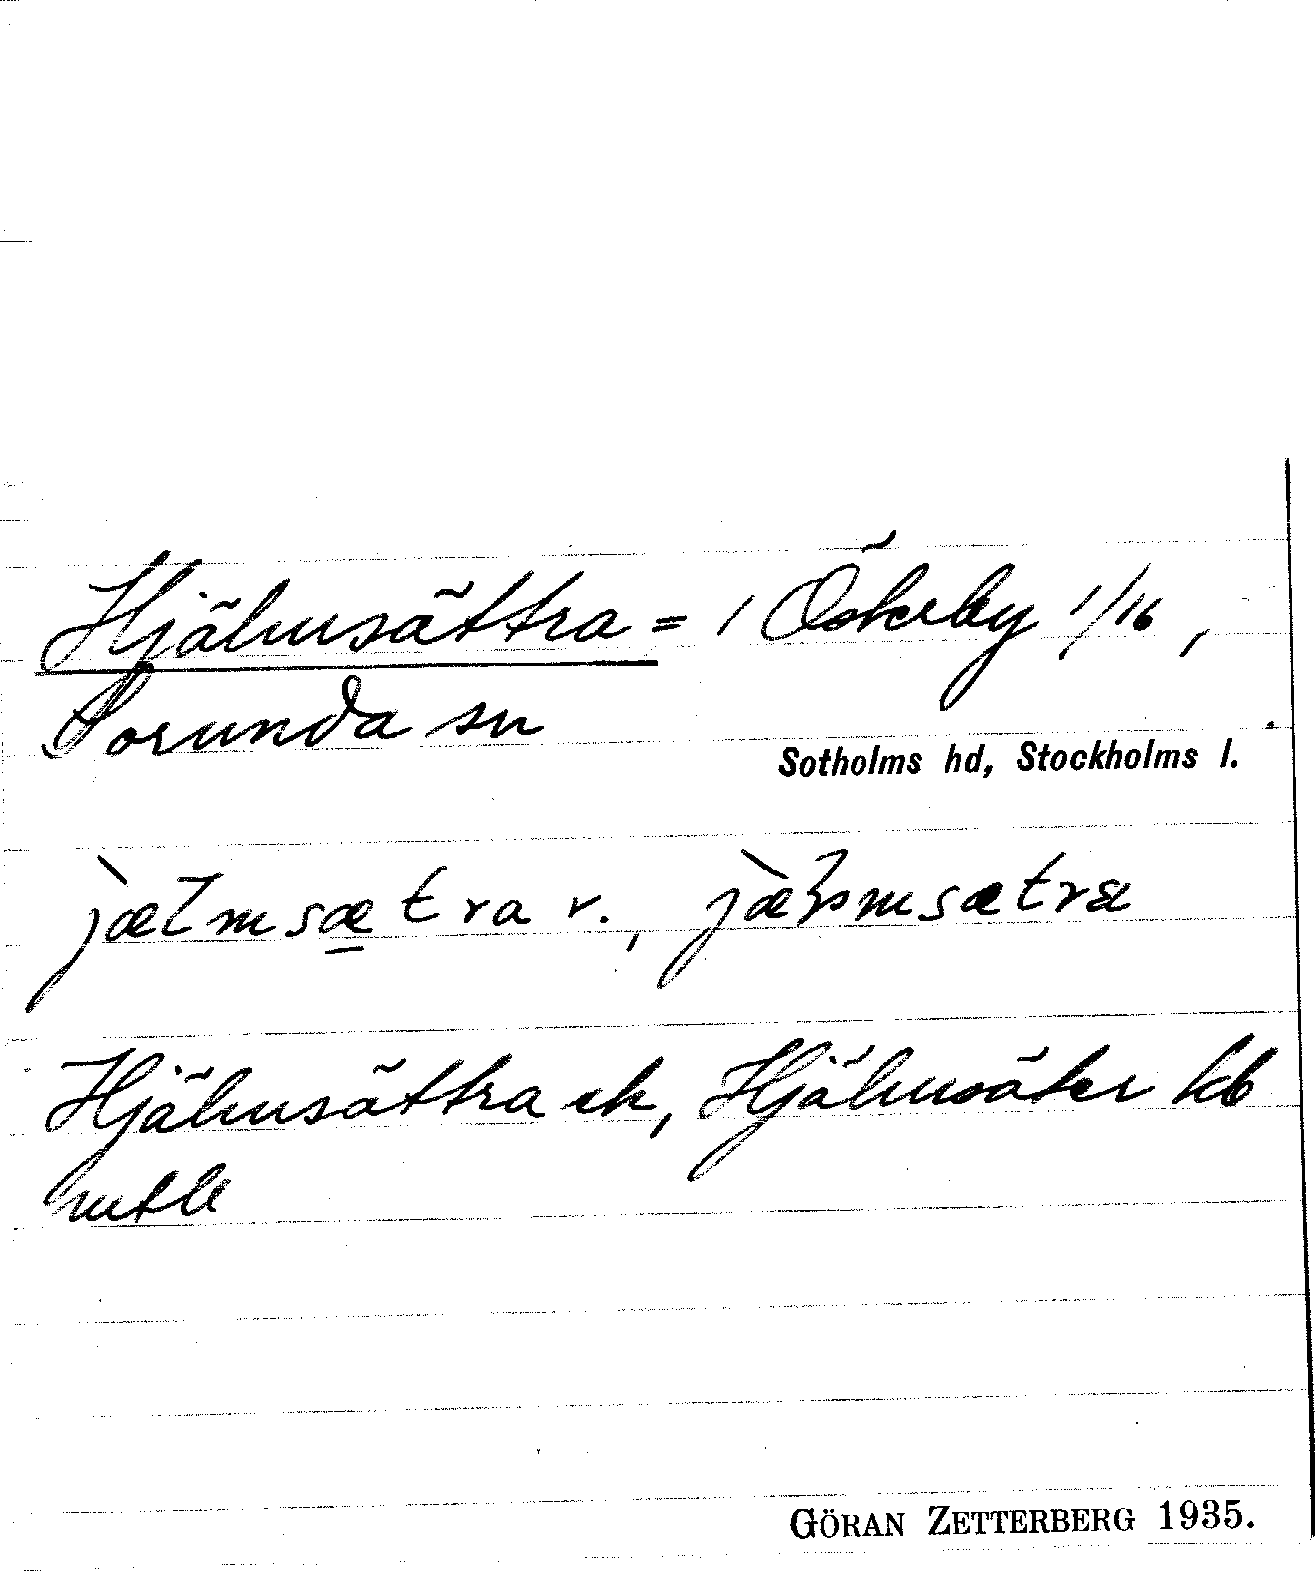 Hjälmsättra = 1 Österby 1/16,
Sorunda sn
Sotholms hd, Stockholms l.
jælmsætra r., jæ̀ɽmsætra
Hjälmsättra ek, Hjälmsäter kb
mtlb
GÖRAN ZETTERBERG 1935.